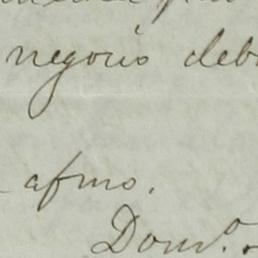 negocio deb
afmo.
Domo.